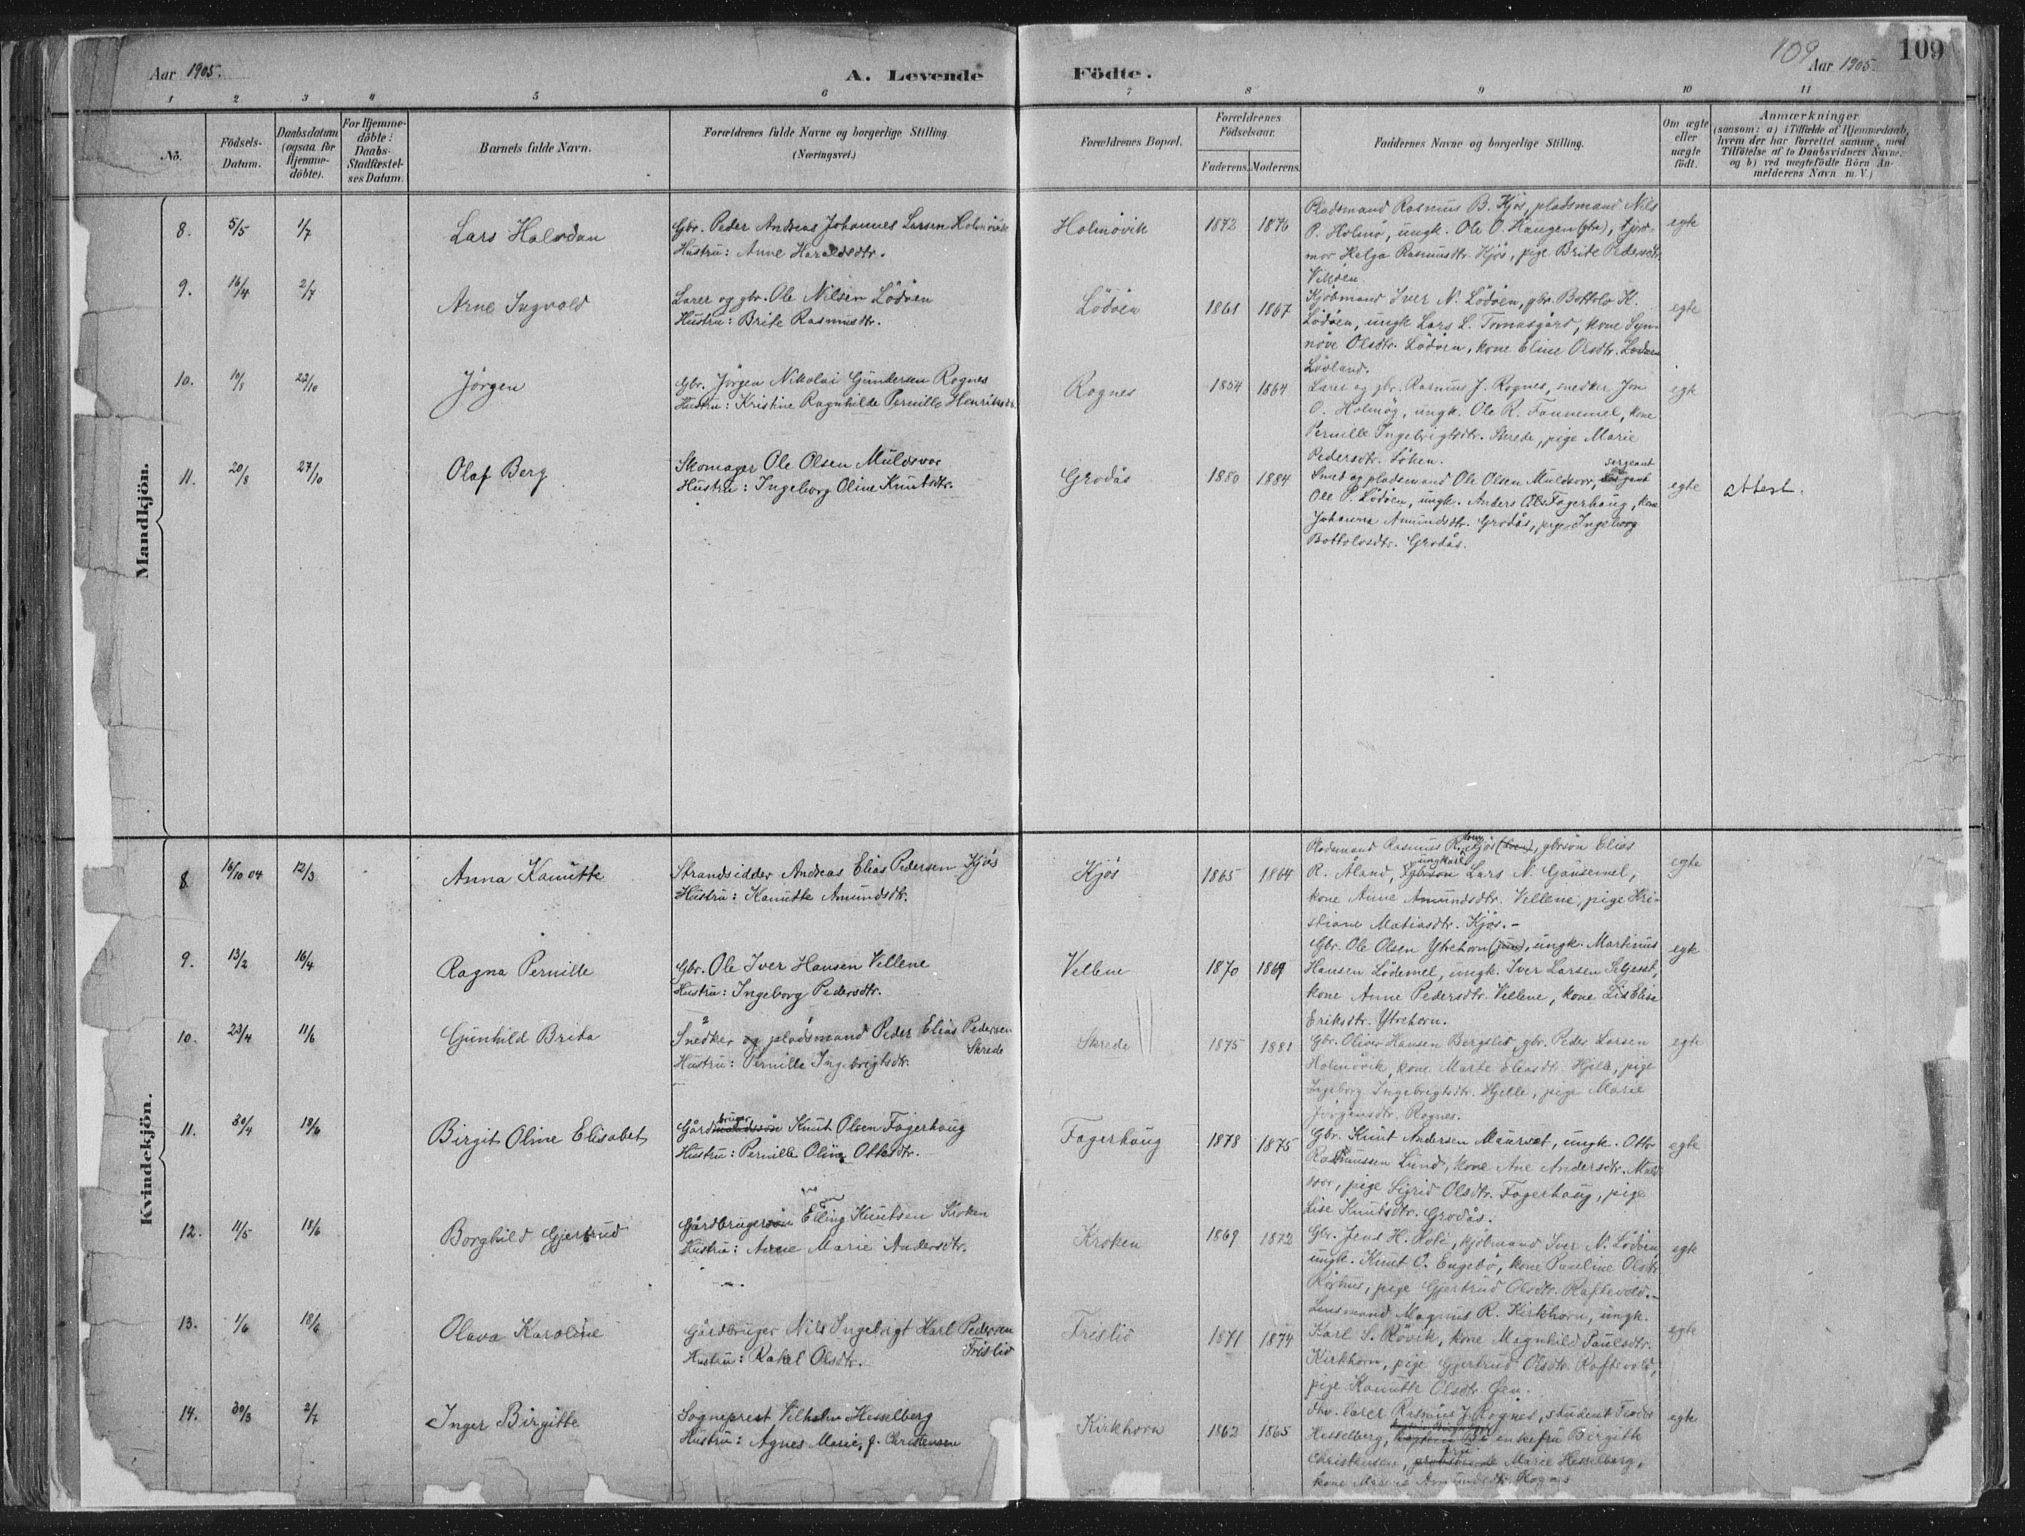 Aar 1905.
A. Levende Födte.
109 Aar 1905. 109
1 2 3 4 5 6 7 8 9 10 11
No.
Födsels-Datum.
Daabsdatum (ogsaa for Hjemmedöbte).
For Hjemmedöbte: Daabs-Stadfæstelses Datum.
Barnets fulde Navn.
Forældrenes fulde Navne og borgerlige Stilling. (Næringsvei.)
Forældrenes Bopæl.
Forældrenes Födselsaar.
Faderens. Moderens.
Faddernes Navne og borgerlige Stilling.
Om ægte eller uægte födt.
Anmærkninger
(saasom: a) i Tilfælde af Hjemmedaab, hvem der har forrettet samme, med Tilföielse af to Daabsvidners Navne, og b) ved uægtefödte Börn Anmelderens Navn m. V.)
Mandkjön.
8. 5/5 1/7 Lars Halvdan
Gbr. Peder Andreas Johannes Larsen Holmövik
Hustru: Anne Haraldsdtr.
Holmövik 1872 1876
Pladsmand Rasmus B. Kjös, pladsmand Nils
P. Holmö, ungk. Ole O. Haugen (gbr), Jord-
mor Helga Rasmusdtr. Kjös, pige Brite Pedersdtr.
egte
9. 16/4 2/7 Arne Ingvald
Lærer og gbr. Ole Nilsen Lödöen
Hustru: Brite Rasmusdtr.
Lödöen 1861 1867
Kjöbmand Iver N. Lödöen, gbr. Bottolv K.
Lödöen, ungk Lars L. Tomasgård, kone Syn-
növe Olsdtr. Lödöen, kone Eline Olsdtr.
Lövland.
egte
10. 10/8 22/10 Jörgen
Gbr. Jörgen Nikolai Gundersen Rognes
Hustru: Kristine Ragnhilde Pernille Henriksdtr.
Rognes 1854 1864
Lærer og gbr. Rasmus J. Rognes, snedker Jon
O. Holmöy, ungk. Ole R. Fannemel, kone
Pernille Ingebrigtsdtr. Skrede, pige Marie
Pedersdtr. Löken.
egte
11. 20/8 27/10 Olaf Berg
Skomager Ole Olsen Muldsvor
Hustru: Ingeborg Oline Knutsdtr.
Grodås 1880 1884
sergeant
Smed og pladsmand Ole Olsen Muldsvor,
Ole P. Lödöen, ungk. Anders Ols. Fagerhaug, kone
Johanna Amundsdtr. Grodås, pige Ingeborg
Bottolvsdtr. Grodås.
egte attest.
Kvindekjön.
8 16/10 04 12/3 Anna Kanutte
Strandsidder Andreas Elias Pedersen Kjös
Hustru: Kanutte Amundsdtr.
Kjös 1865 1864
Pladsmand Rasmus R. Kjös, gbrsön Elias
R. Åland, ungkarl Lars N. Gausemel,
kone Anne Amundsdtr. Vellene, pige Kri-
stiane Matiasdtr. Kjös.-
egte
9. 13/2 16/4 Ragna Pernille
Gbr. Ole Iver Hansen Vellene
Hustru: Ingeborg Pedersdtr.
Vellene 1870 1869
Gbr. Ole Olsen Ytrehorn (jun), ungk. Martinus
Hansen Lödemel, ungk. Iver Larsen Seljeset,
kone Anne Pedersdtr. Vellene, kone Lis Elise
Eriksdtr. Ytrehorn.
egte
10. 23/4 11/6 Gunhild Brita
Snedker og pladsmand Peder Elias Pedersen
Skrede
Hustru: Pernille Ingebrigtsdtr.
Skrede 1875 1881
Gbr. Oliver Hansen Bergslid, gbr. Peder Larsen
Holmövik, kone Marte Eliasdtr. Hjelle, pige
Ingeborg Ingebrigtsdtr. Hjelle, pige Marie
Jörgensdtr. Rognes.
egte
11. 30/4 18/6 Birgit Oline Elisabet
Gårdbruger Knut Olsen Fagerhaug
Hustru: Pernille Oline Ottesdtr.
Fagerhaug 1878 1875
Gbr. Knut Andersen Maurset, ungk. Otto
Rasmussen Lund, kone Ane Andersdtr. Mulds-
vor, pige Sigrid Olsdtr. Fagerhaug, pige
Lise Knutsdtr. Grodås.
egte
12. 11/5 18/6 Borghild Gjertrud
Gårdbrugersön Elling Knutsen Kroken
Hustru: Anne Marie Andersdtr.
Kroken 1869 1872
Gbr. Jens H. , kjöbmand Iver N. Lödöen,
ungk. Knut O. Engebö, kone Pauline Olsdtr.
, pige Gjertrud Olsdtr. Raftevold.-
egte
13. 1/6 18/6 Olava Karoline
Gårdbruger Nils Ingebrigt Karl Pedersen
Frislid
Hustru: Rakel Olsdtr.
Frislid 1871 1874
Lensmand Magnus R. Kirkhorn, ungk.
Karl S. Rövik, kone Magnhild Paulsdtr.
Kirkhorn, pige Gjertrud Olsdtr. Raftevold,
pige Kanutte Olsdtr. Öen.
egte
14. 30/3 2/7 Inger Birgitte
Sogneprest Vilhelm Hesselberg
Hustru: Agnes Marie, f. Christensen
Kirkhorn 1862 1865
lærer Rasmus J. Rognes, student
Hesselberg, enkefru Birgitte
Christensen, Marie Hesselberg,
kone Amundsdtr. Rognes
egte